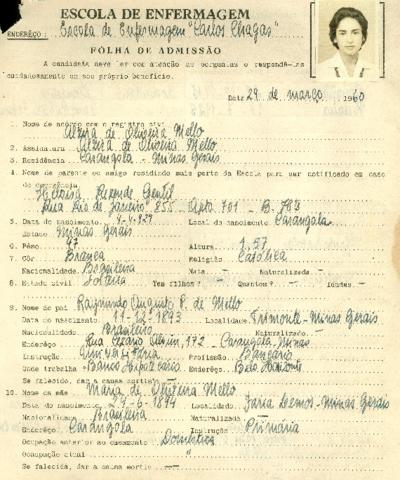 ESCOLA DE ENFERMAGEM
ENDERÊÇO: Escola de Enfermagem "Carlos Chagas"
FÔLHA DE ADMISSÃO
A candidata deve ler com atenção as perguntas e respondê-las
cuidadosamente em seu próprio benefício.
Data 29 de março, 1960
1. Nome de acôrdo com o registro civil
Alzira de Oliveira Mello
2. Assinatura Alzira de Oliveira Mello
3. Residência Carangola - Minas Gerais
4. Nome de parente ou amigo residindo mais perto da Escola para ser notificado em caso
de emergência
Heloisa Rezende Gentil
Rua Rio de Janeiro 855 Apto 701 - B.
5. Data do nascimento Local do nascimento Carangola
Estado Minas Gerais
6. Pêso 47 Altura 1.57
7. Côr Branca Religião Católica
Nacionalidade Brasileira Nata - Naturalizada -
8. Estado civil Solteira Tem filhos? - Quantos? - Idades -
9. Nome do pai Raymundo Augusto P. de Mello
Data do nascimento 11-12-1893 Localidade - Minas Gerais
Nacionalidade Brasileiro Naturalizado -
Enderêço Rua 172 - Carangola, Minas
Instrução Universitária Profissão Bancário
Onde trabalha Banco Hipotecário Enderêço Belo Horizonte
Se falecido, dar a causa mortis -
10. Nome da mãe Maria de Oliveira Mello
Data do nascimento 29-6-1894 Localidade Faria Lemos - Minas Gerais
Nacionalidade Brasileira Naturalizada -
Enderêço Carangola Instrução Primária
Ocupação anterior ao casamento Doméstica
Ocupação atual "
Se falecida, dar a causa mortis -